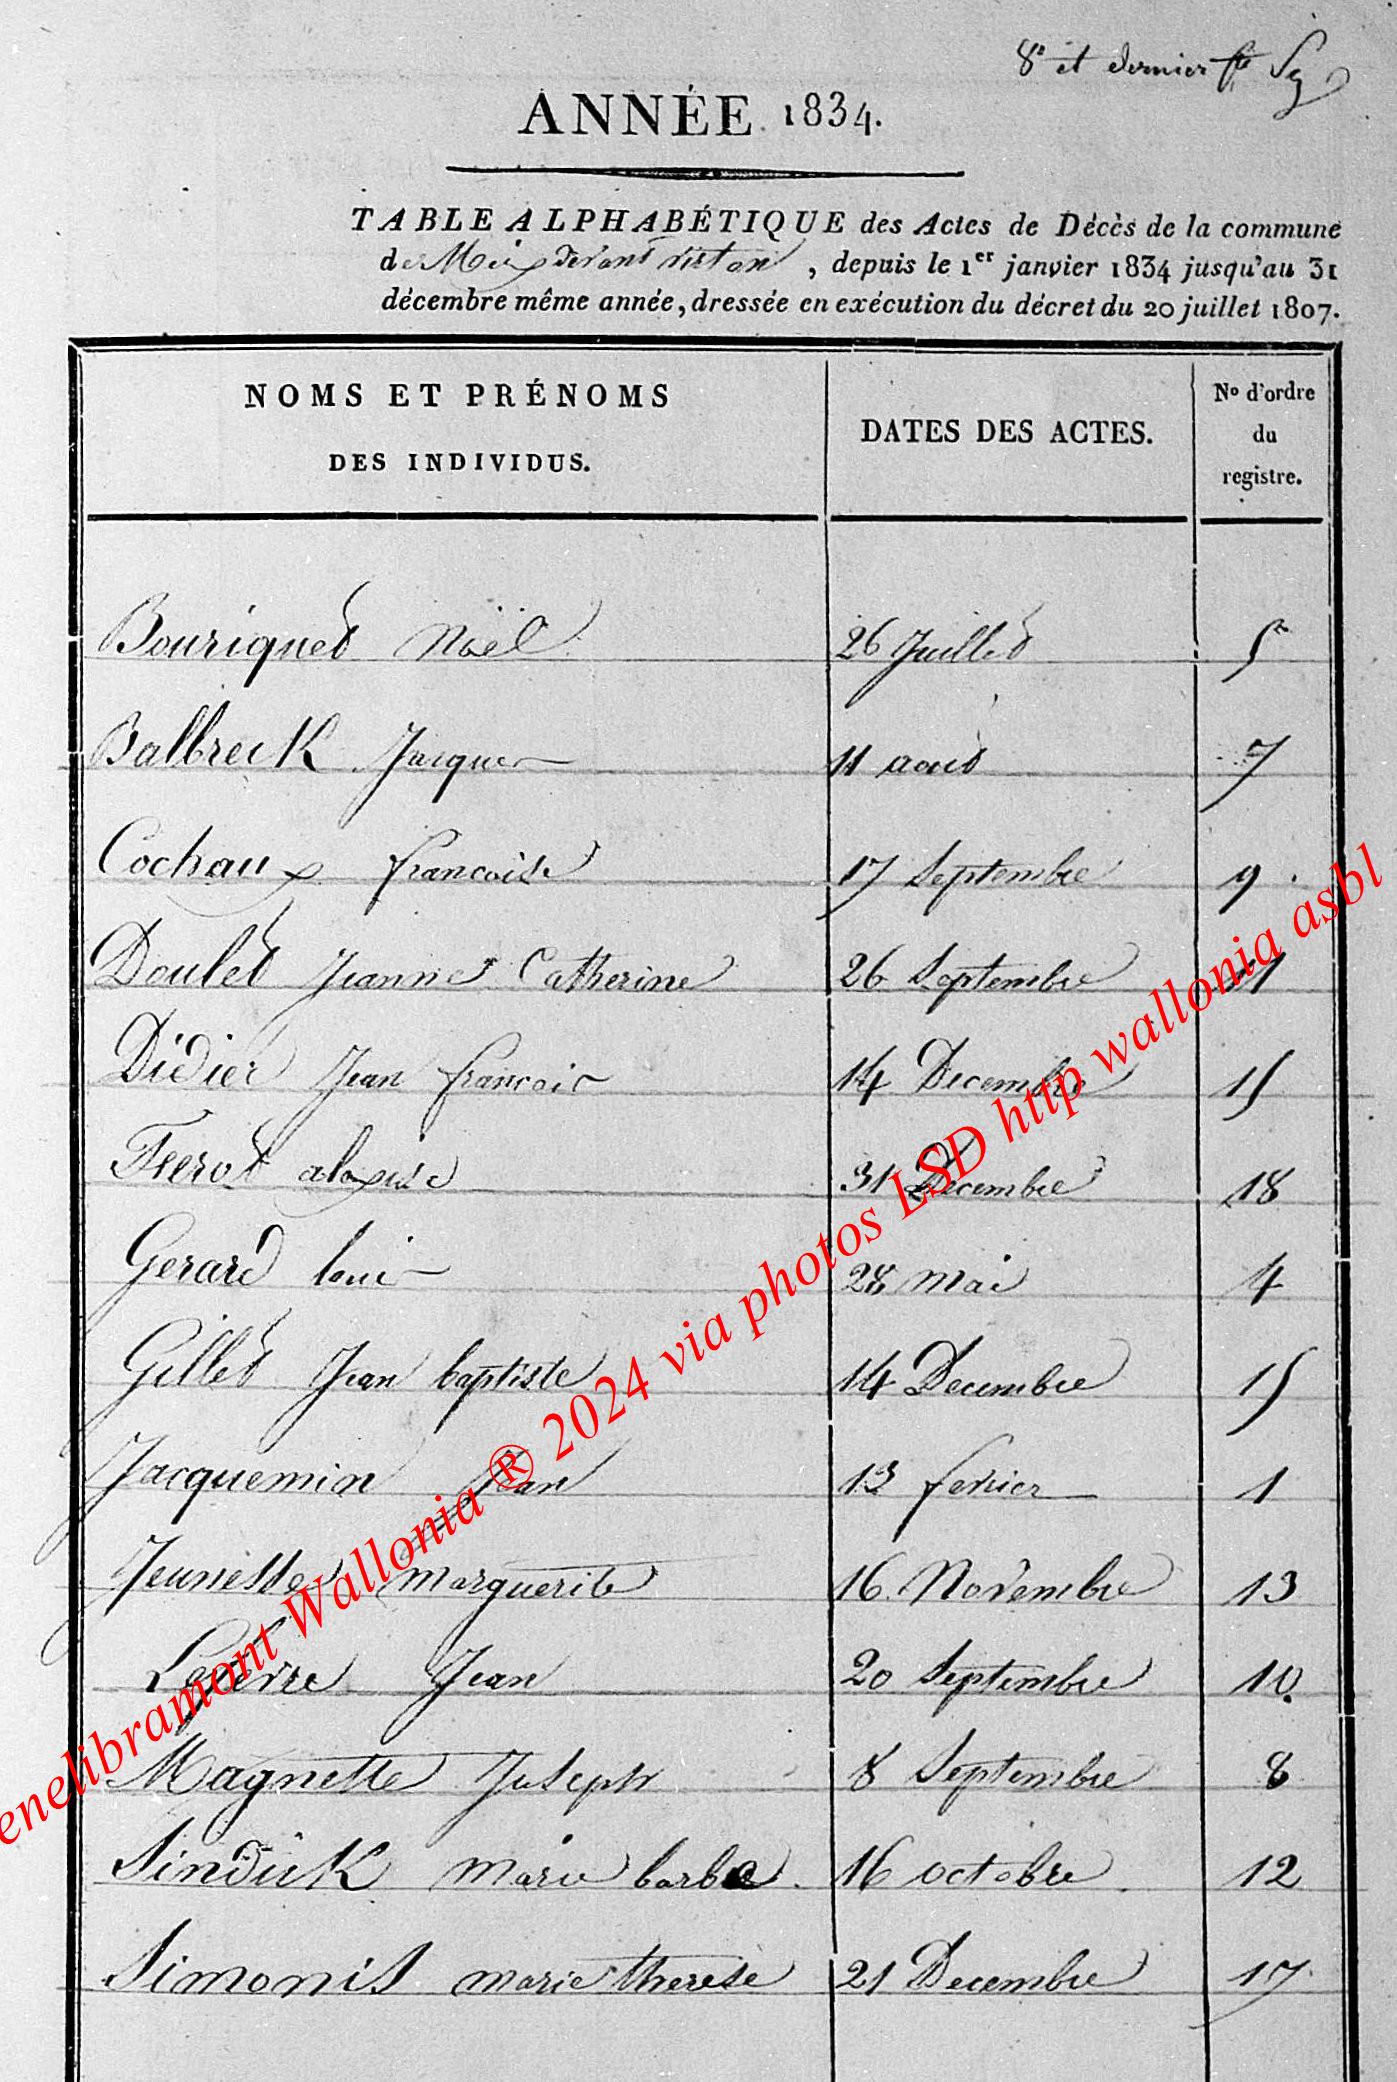 8e et dernier fte Sg
ANNÉE 1834.
TABLE ALPHABÉTIQUE des Actes de Décès de la commune
de Meix devant virton, depuis le 1er janvier 1834 jusqu'au 31
décembre même année, dressée en exécution du décret du 20 juillet 1807.
NOMS ET PRÉNOMS
DES INDIVIDUS.
DATES DES ACTES.
No d'ordre
du
registre.
Bouriquet Noël 26 Juillet 5
Balbreck Jacques 11 aout 7
Cochaux francoise 17 Septembre 9
Doulet Jeanne Catherine 26 Septembre 11
Didier Jean francois 14 Decembre 15
alayise 31 Decembre 18
Gerard louis 28 mai 4
Gillet Jean baptiste 14 Decembre 15
Jacquemin Jean 13 fevrier 1
Jeunesse Marguerite 16 Novembre 13
Lefevre Jean 20 Septembre 10
Magnette Joseph 8 Septembre 8
Sindick Marie barbe 16 octobre 12
Simonis marie therese 21 Decembre 17
enelibramont Wallonia ® 2024 via photos LSD http wallonia asbl